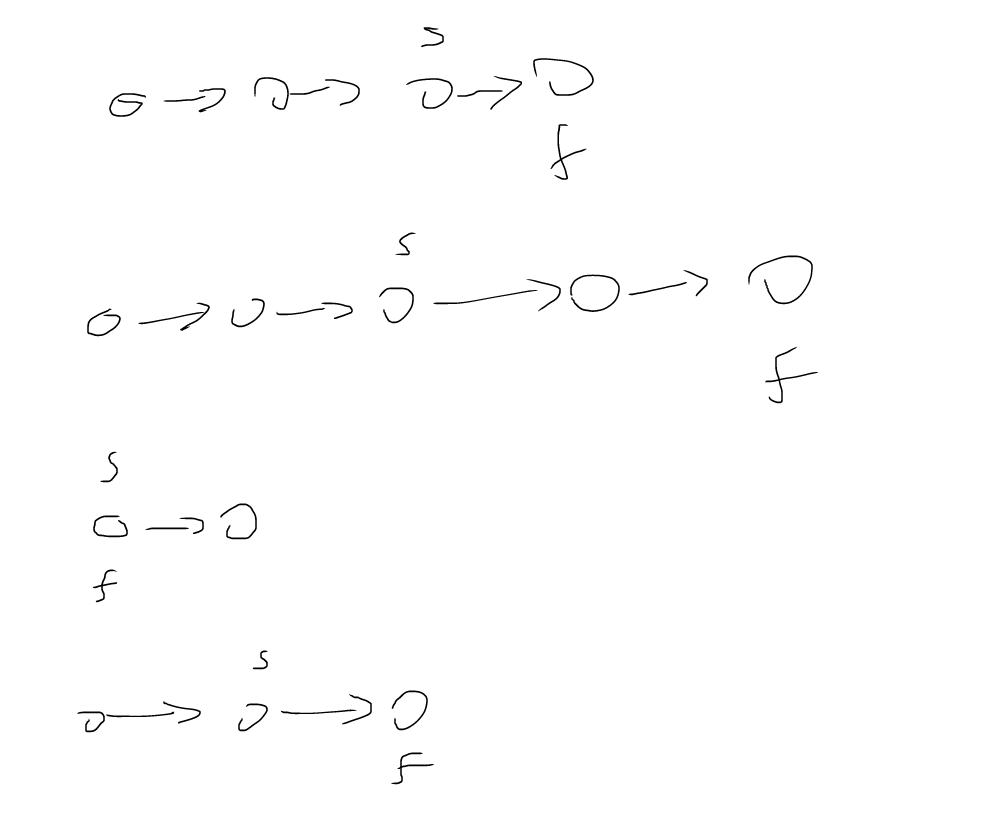 s
f
s
f
s
f
s
f